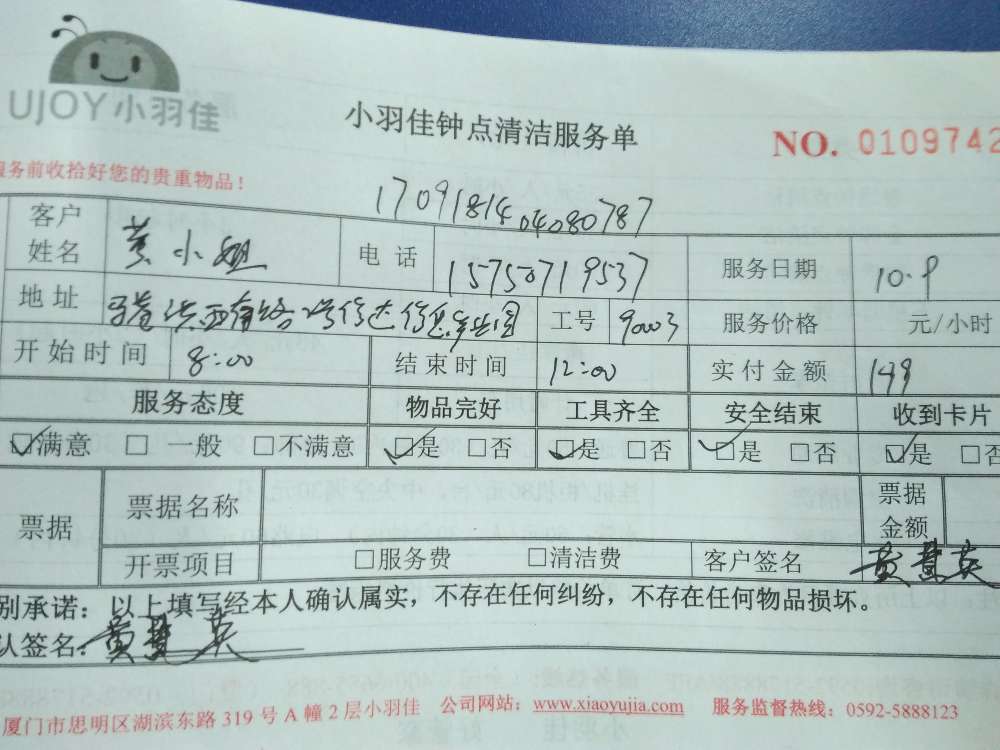 UJOY小羽佳
小羽佳钟点清洁服务单
NO. 0109742
服务前收拾好您的贵重物品！
1709181404080787
客户姓名 黄小姐 电话 15750719537 服务日期 10.9
地址 工号 90003 服务价格 元/小时
开始时间 8:00 结束时间 12:00 实付金额 149
服务态度 物品完好 工具齐全 安全结束 收到卡片
☑满意 □一般 □不满意 ☑是 □否 ☑是 □否 ☑是 □否 ☑是 □否
票据 票据名称 票据金额
开票项目 □服务费 □清洁费 客户签名 黄慧英
别承诺：以上填写经本人确认属实，不存在任何纠纷，不存在任何物品损坏。
认签名：黄慧英
厦门市思明区湖滨东路 319 号 A 幢 2 层小羽佳 公司网站：www.xiaoyujia.com 服务监督热线：0592-5888123